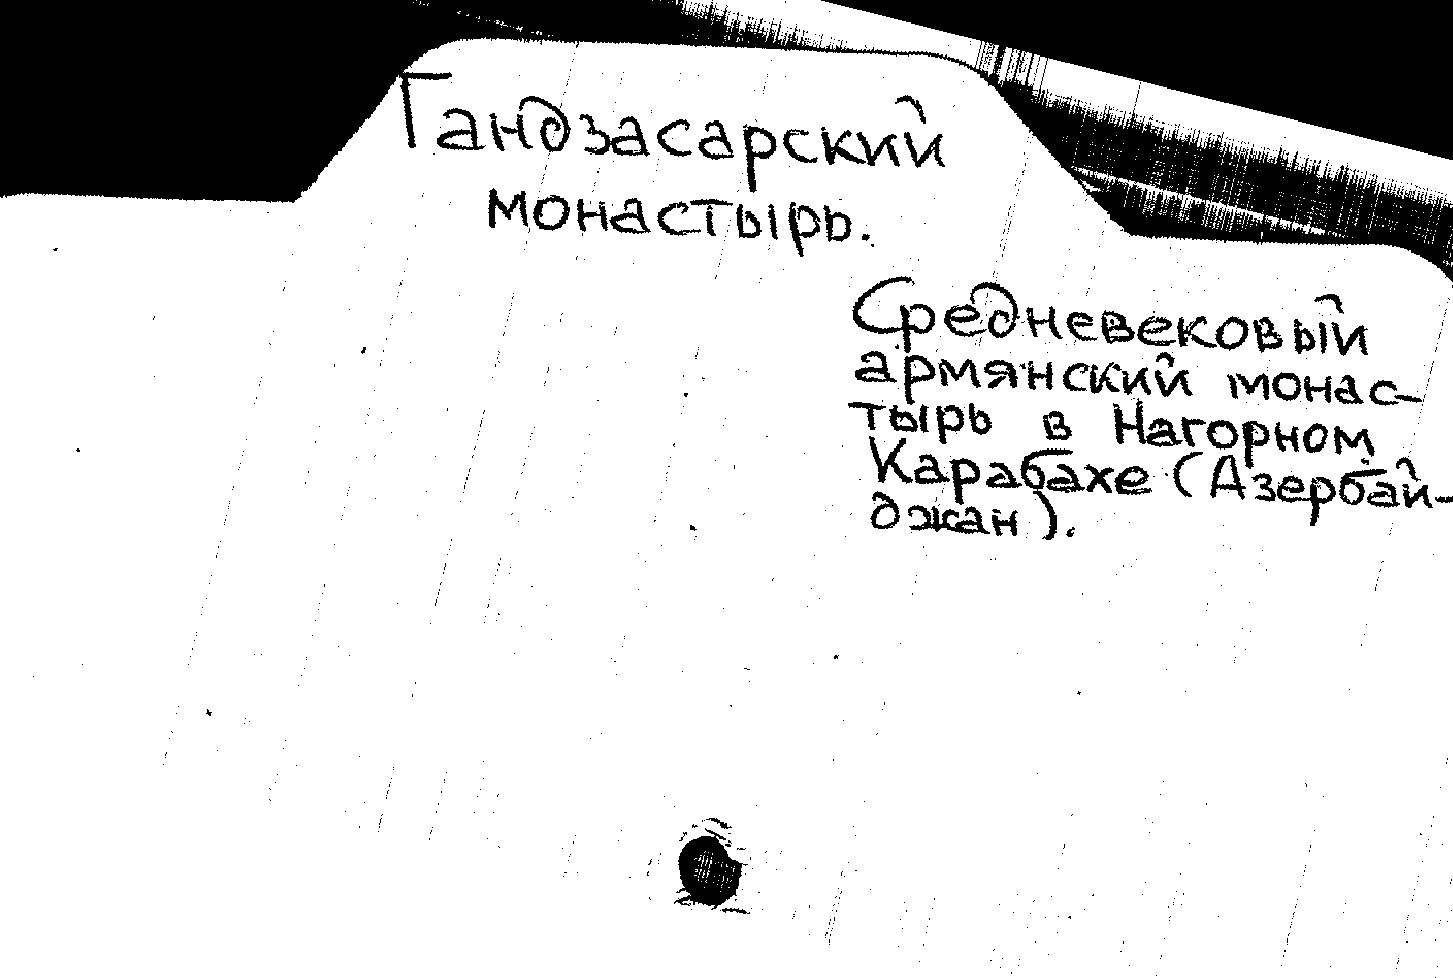 Гандзасарский
монастырь.
Средневековый
армянский монас-
тырь в Нагорном
Карабахе (Азербай-
джан).